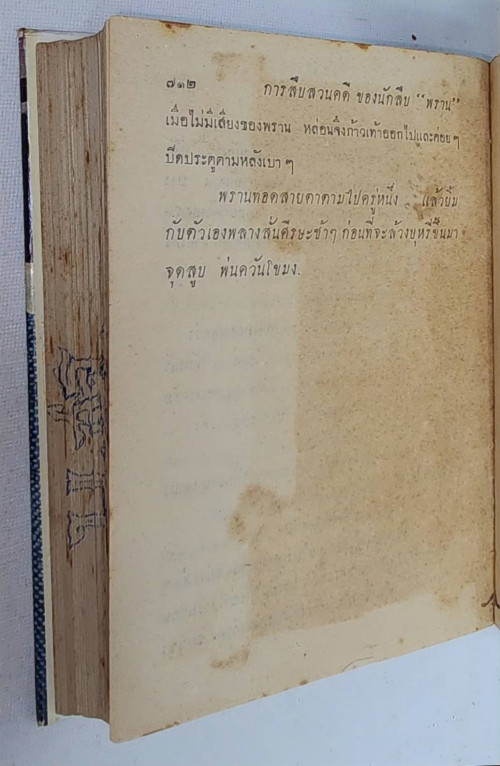 ๗๑๒ การสืบสวนคดี ของนักสืบ “พราน”
เมื่อไม่มีเสียงของพราน หล่อนจึงก้าวเท้าออกไปและค่อย ๆ
ปิดประตูตามหลังเบา ๆ
พรานทอดสายตาตามไปครู่หนึ่ง แล้วยิ้ม
กับตัวเองพลางสั่นศีรษะช้าๆ ก่อนที่จะล้วงบุหรี่ขึ้นมา
จุดสูบ พ่นควันโขมง.